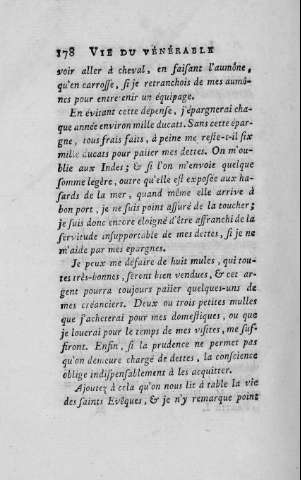 178 VIE DU VÉNÉRABLE
voir aller à cheval, en faisant l'aumône,
qu'en carrosse, si je retranchois de mes aumô-
nes pour entretenir un équipage.
En évitant cette dépense, j'épargnerai cha-
que année environ mille ducats. Sans cette épar-
gne, tous frais faits, à peine me reste-t-il six
mille ducats pour païer mes dettes. On m'ou-
blie aux Indes; & si l'on m'envoie quelque
somme légère, outre qu'elle est exposée aux ha-
sards de la mer, quand même elle arrive à
bon port, je ne suis point assuré de la toucher;
je suis donc encore éloigné d'être affranchi de la
servitude insupportable de mes dettes, si je ne
m'aide par mes épargnes.
Je peux me défaire de huit mules, qui tou-
tes très-bonnes, seront bien vendues, & cet ar-
gent pourra toujours païer quelques-uns de
mes créanciers. Deux ou trois petites mulles
que j'acheterai pour mes domestiques, ou que
je louerai pour le temps de mes visites, me suf-
firont. Enfin, si la prudence ne permet pas
qu'on demeure chargé de dettes, la conscience
oblige indispensablement à les acquitter.
Ajoutez à cela qu'on nous lit à table la vie
des saints Evêques, & je n'y remarque point